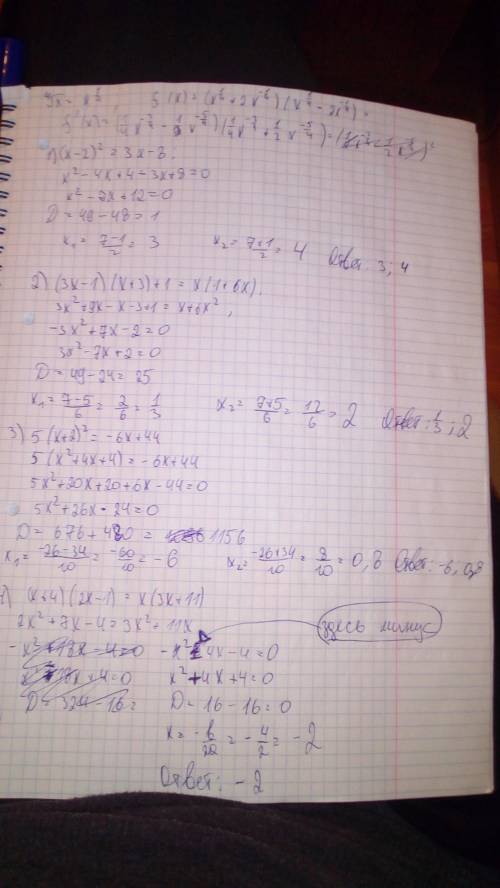 1) (x-2)² = 3x-8.
x²-4x+4-3x+8=0
x²-7x+12=0
D = 49-48=1
x₁ = 7-1/2 = 3 x₂ = 7+1/2 = 4 Ответ: 3; 4
2) (3x-1)(x+3)+1 = x(1+6x).
3x²+9x-x-3+1 = x+6x²,
-3x²+7x-2=0
3x²-7x+2=0
D = 49-24=25
x₁ = 7-5/6 = 2/6 = 1/3 x₂ = 7+5/6 = 12/6 = 2 Ответ: 1/3; 2
3) 5(x+2)² = -6x+44
5(x²+4x+4) = -6x+44
5x²+20x+20+6x-44=0
5x²+26x-24=0
D = 676+480 = 1156
x₁ = -26-34/10 = -60/10 = -6 x₂ = -26+34/10 = 8/10 = 0,8 Ответ: -6; 0,8
(x+4)(2x-1) = x(3x+11)
2x²+7x-4=3x²+11x
здесь минус
-x²-4x-4=0
x²+4x+4=0
D = 16-16=0
x = -b/2a = -4/2 = -2
Ответ: -2